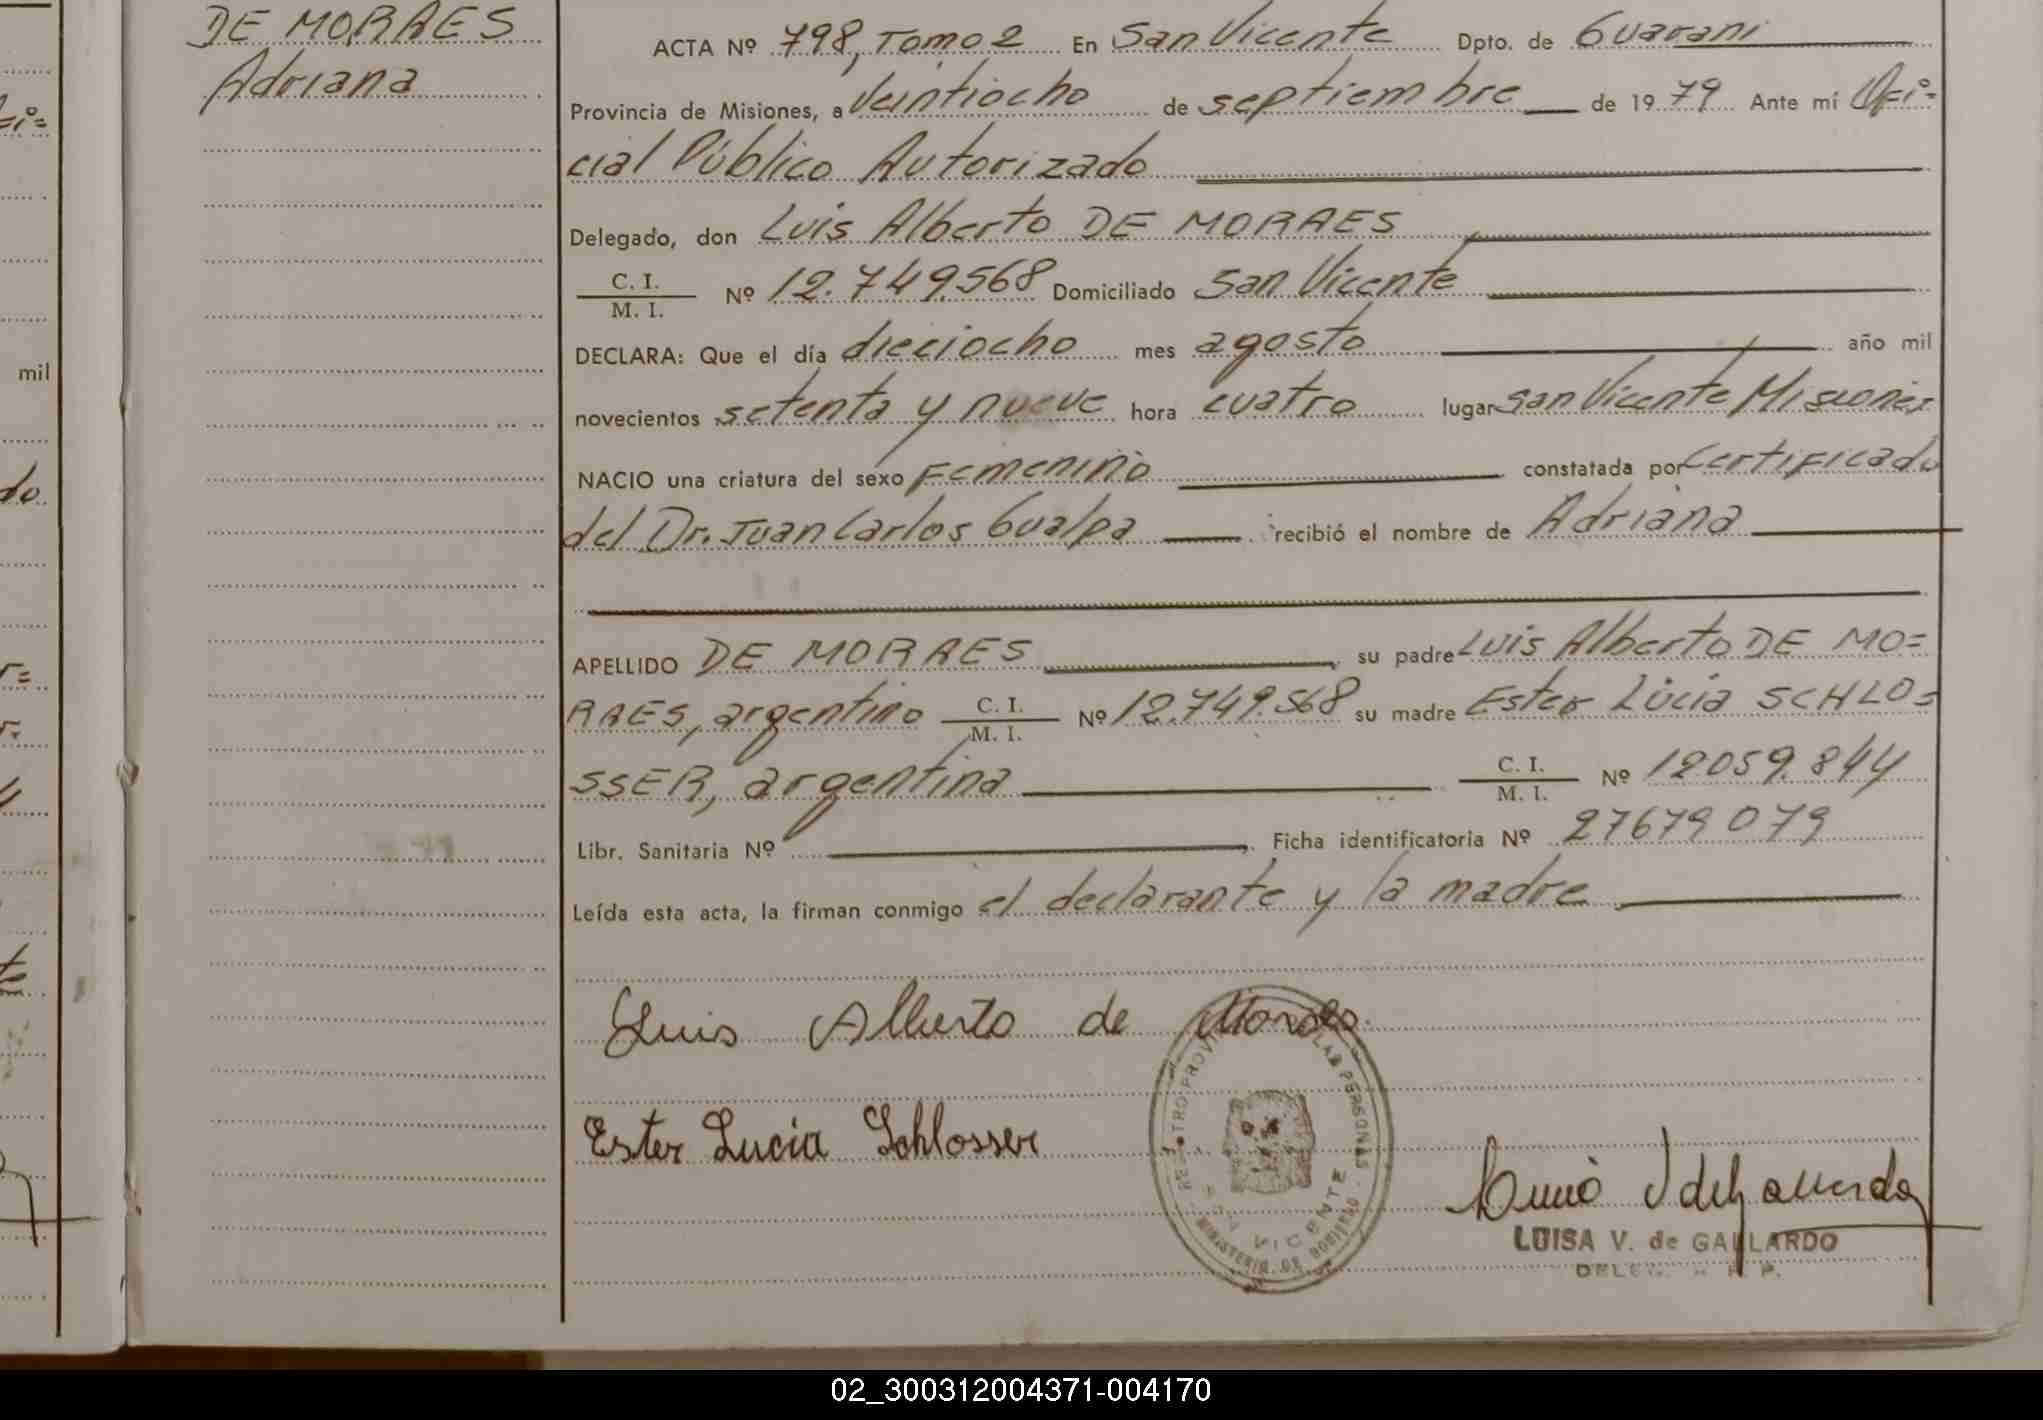 DE MORAES
Adriana
ACTA Nº 798, Tomo 2 En San Vicente Dpto. de Guarani
Provincia de Misiones, a Veintiocho de septiembre de 1979 Ante mí Ofi=
cial Público Autorizado
Delegado, don Luis Alberto DE MORAES
C. I.
M. I. Nº 12.749.568 Domiciliado San Vicente
DECLARA: Que el día dieciocho mes agosto año mil
novecientos setenta y nueve hora cuatro lugar San Vicente Misiones
NACIO una criatura del sexo Femenino constatada por Certificado
del Dr. Juan Carlos Gualpa recibió el nombre de Adriana
APELLIDO DE MORAES su padre Luis Alberto DE MO=
RAES, argentino C. I.
M. I. Nº 12.749.568 su madre Ester Lucia SCHLO=
SSER, argentina C. I.
M. I. Nº 12059.844
Libr. Sanitaria Nº Ficha identificatoria Nº 27679079
Leída esta acta, la firman conmigo el declarante y la madre
Luis Alberto de Moraes
Ester Lucia Schlosser
VICENTE
MINISTERIO DE GOBIERNO
LUISA V. de GALLARDO
mil
do
02_300312004371-004170